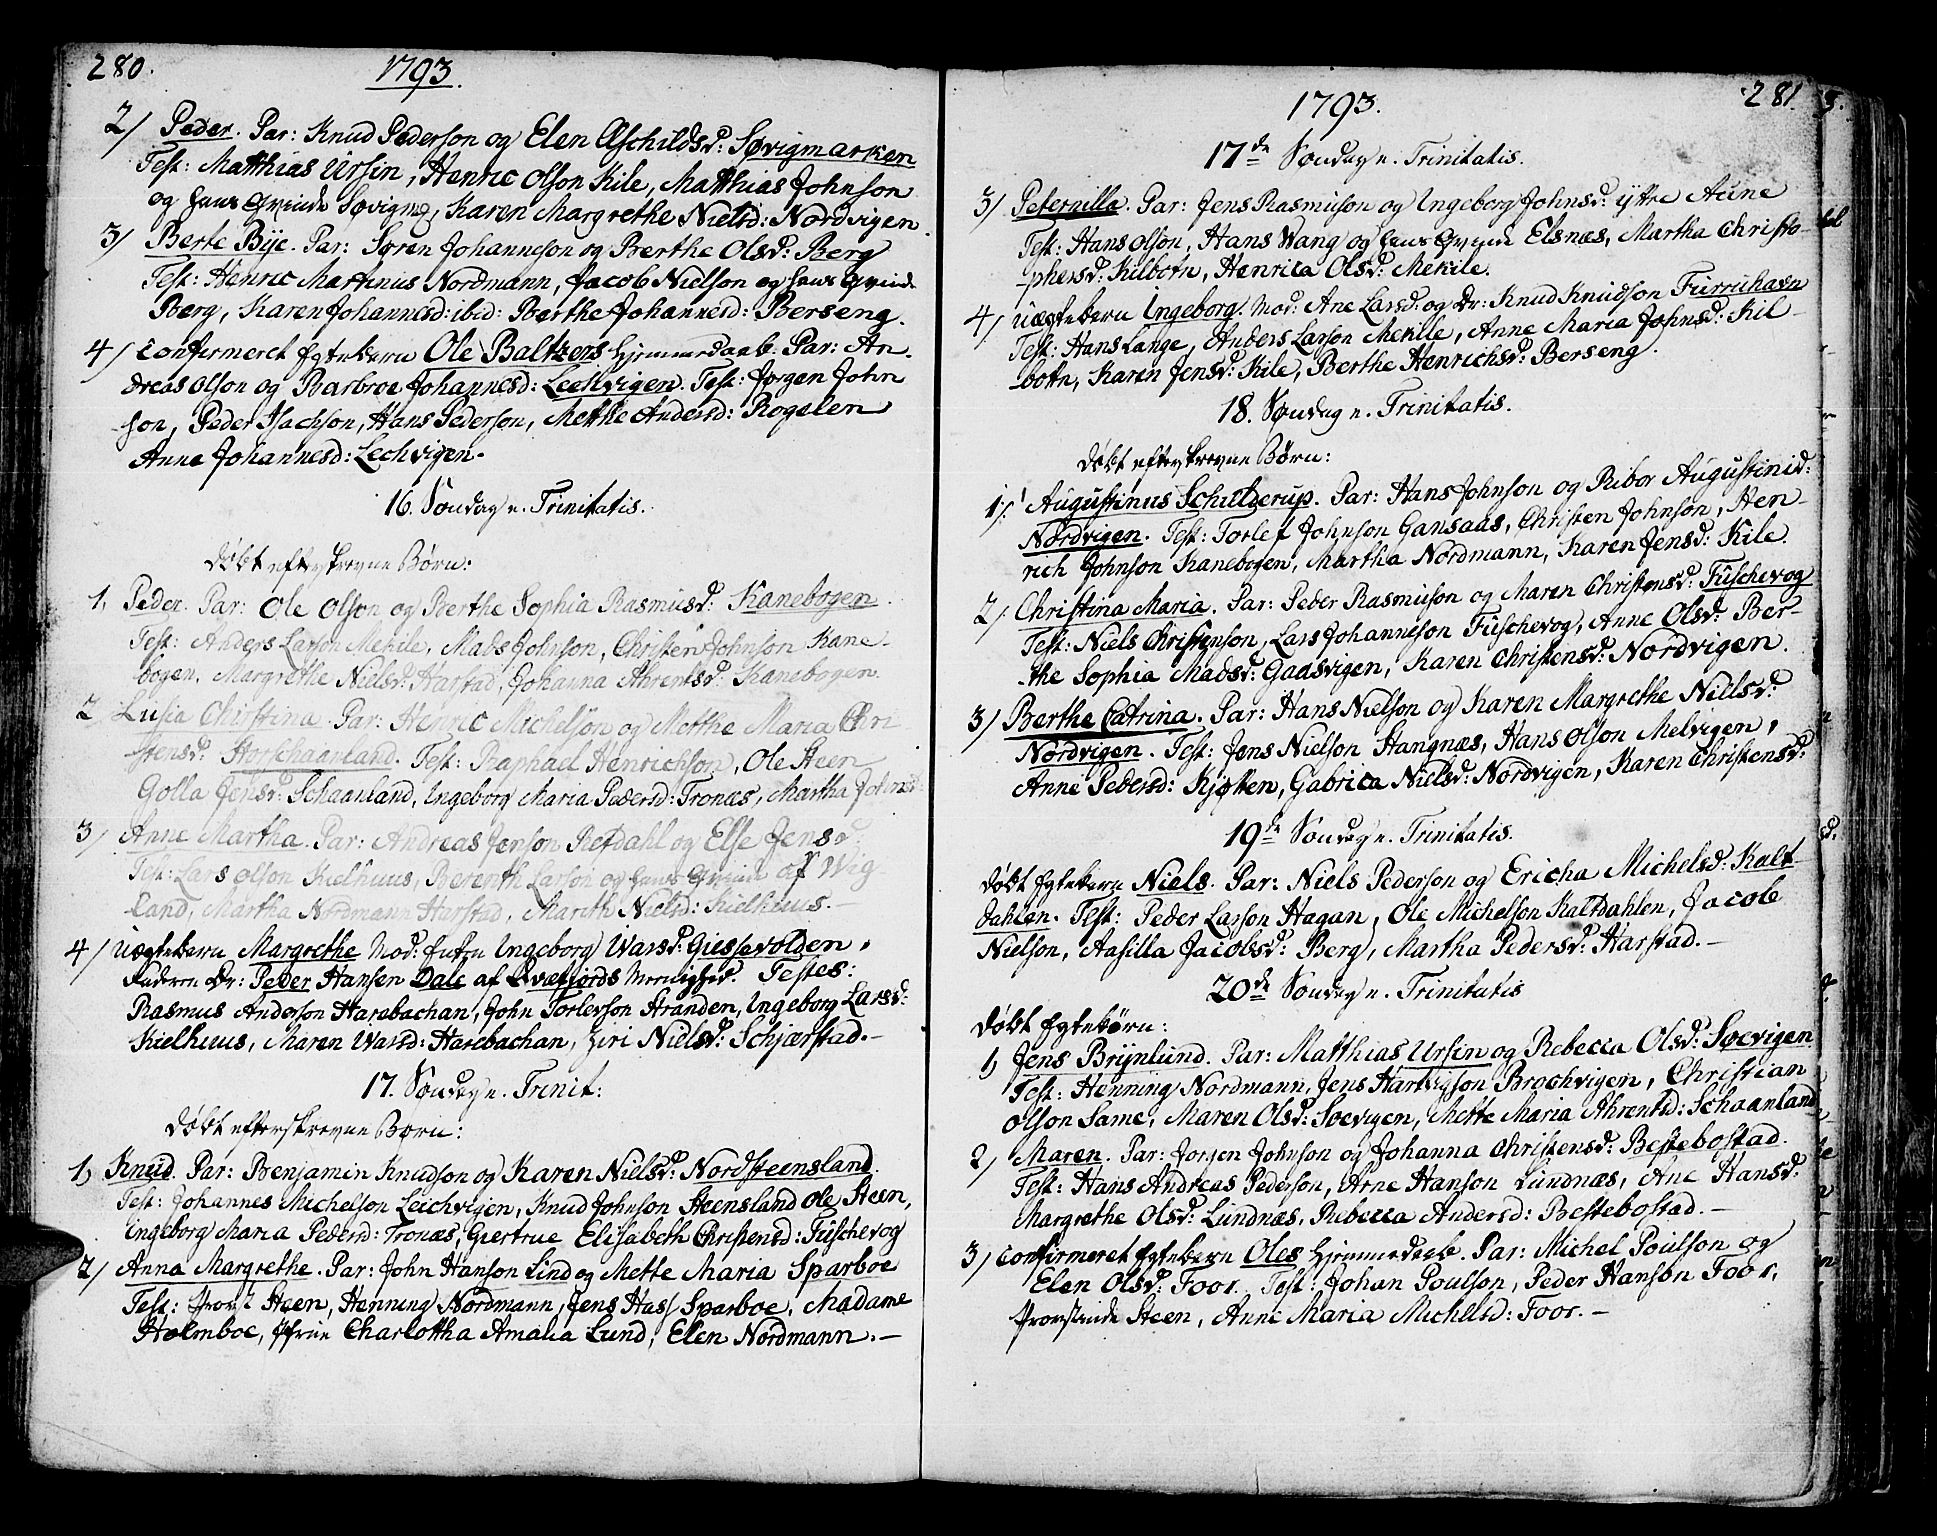 280.
1793.
2/ Peder. Par: Knud Pederson og Elen Aschildsd: Søvigmarken
Test: Matthias Ursin, Henric Olson Kile, Matthias Johnson
og hans Qvinde Søvigen, Karen Margrethe Nielsd: Nordvigen.
3/ Berte Bye. Par: Søren Johanneson og Berthe Olsd: Berg
Test: Henric Martinus Nordmann, Jacob Nielson og hans Qvinde
Berg, Karen Johannesd: ibid: Berthe Johannesd: Berseng.
4/ Confirmeret Egtebarn Ole Baltzers Hjemmedaab. Par: An-
dreas Olson og Barbroe Johannesd: Lechvigen. Test: Jørgen John
son, Peder Isachson, Hans Pederson, Mette Andersd: Rogelen
Anne Johannesd: Lechvigen.
16. Søndag n. Trinitatis.
Døbt efterskrevne Børn:
1, Peder. Par: Ole Olson og Berthe Sophia Rasmusd: Kanebogen.
Test: Anders Larson Mekile, Mads Johnson, Christen Johnson Kane-
bogen, Margrethe Nielsd: Harstad, Johanna Ahrentsd: Kanebogen.
2 Lusia Christina. Par: Henric Michelson og Mette Maria Chri
stensd: Storschaanland. Test: Raphael Henrichson, Ole Steen
Golla Jensd: Schaanland, Ingeborg Maria Pedersd: Tronæs, Martha Johnsd:
3/ Anne Martha. Par: Andreas Jenson Refdahl og Else Jensd:
Test: Lars Olson Kielhuus, Berenth Larson og hans Qvinde af Wig
land, Martha Nordmann Harstad, Marith Nielsd: Kielhuus.-
4/ Uægtebarn Margrethe Mod: Enken Ingeborg Ivarsd: Giessevolden,
Faderen Dr: Peder Hansen Dale af Qvæfjords Menighed. Testes:
Rasmus Anderson Harebachan, John Torlevson Stranden, Ingeborg Larsd:
Kielhuus, Maren Ivarsd: Harebachan, Ziri Nielsd: Schjærstad.-
17. Søndag n. Trinit:
Døbt efterskrevne Børn:
1) Knud. Par: Benjamin Knudson og Karen Nielsd: Nordsteensland.
Test: Johannes Michelson Leichvigen, Knud Johnson Steensland Ole Steen,
Ingeborg Maria Pedersd: Tronæs, Giertrue Elisabeth Christensd: Fuschevog
2/ Anna Margrethe. Par: John Hanson Lind og Mette Maria Sparboe
Test: Provst Steen, Henning Nordmann, Jens Hass Sparboe, Madame
Holmboe, Jfrue Charlottha Amalia Lund, Elen Nordmann.-
281.
1793.
17de Søndag n. Trinitatis.
3/ Peternilla. Par: Jens Rasmuson og Ingeborg Johnsd: yttre Aune
Test: Hans Olson, Hans Wang og hans Qvinde Elsnæs, Martha Christo-
phersd: Kilbotn, Henrica Olsd: Mekile.
4/ Uægtebarn Ingeborg. Mod: Ane Larsd: og Dr: Knud Knudson Furruhavn
Test: Hans Lange, Anders Larson Mekile, Anne Maria Johnsd: Kil-
botn, Karen Jensd: Kile, Berthe Henrichsd: Berseng.
18. Søndag n. Trinitatis.
Døbt efterskrevne Børn:
1/. Augustinus Schulderup. Par: Hans Johnson og Ribor Augustinid:
Nordvigen. Test: Torlef Johnson Gansaas, Christen Johnson, Hen-
rich Johnson Kanebogen, Martha Nordmann, Karen Jensd: Kile.
2/. Christina Maria. Par: Peder Rasmuson og Maren Christensd: Fuschevog
Test: Niels Christenson, Lars Johanneson Fuschevog, Anne Olsd: Ber-
the Sophia Madsd: Gaasvigen, Karen Christensd: Nordvigen.
3/ Berthe Catrina. Par: Hans Nielson og Karen Margrethe Nielsd:
Nordvigen. Test: Jens Nielson Stangnæs, Hans Olson Melvigen,
Anne Pedersd: Kjøtten, Gabrica Nielsd: Nordvigen, Karen Christensd:
19de Søndag n. Trinitatis.
Døbt Egtebarn Niels. Par: Niels Pederson og Ericha Michelsd: Kalt-
dahlen. Test: Peder Larson Hagan, Ole Michelson Kaltdahlen, Jacob
Nielson, Aasilla Jacobsd: Berg, Martha Pedersd: Harstad.-
20de Søndag n. Trinitatis
Døbt Egtebørn:
1) Jens Brynlund. Par: Matthias Ursin og Rebecca Olsd: Søevigen.
Test: Henning Nordmann, Jens Hartvigson Brochvigen, Christian
Olson Same, Maren Olsd: Soevigen, Mette Maria Ahrentsd: Schaanland
2) Maren. Par: Jørgen Johnson og Johanna Christensd: Bestebostad.
Test: Hans Andreas Pederson, Arne Hanson Lundnæs, Ane Hansd:
Margrethe Olsd: Lundnæs, Rebecca Andersd: Bestebostad.-
3) Confirmeret Egtebarn Oles Hjemmedaab. Par: Michel Poulson og
Elen Olsd: Foor. Test: Johan Poulson, Peder Hanson Foor,
Provstinde Steen, Anne Maria Michelsd: Foor.-